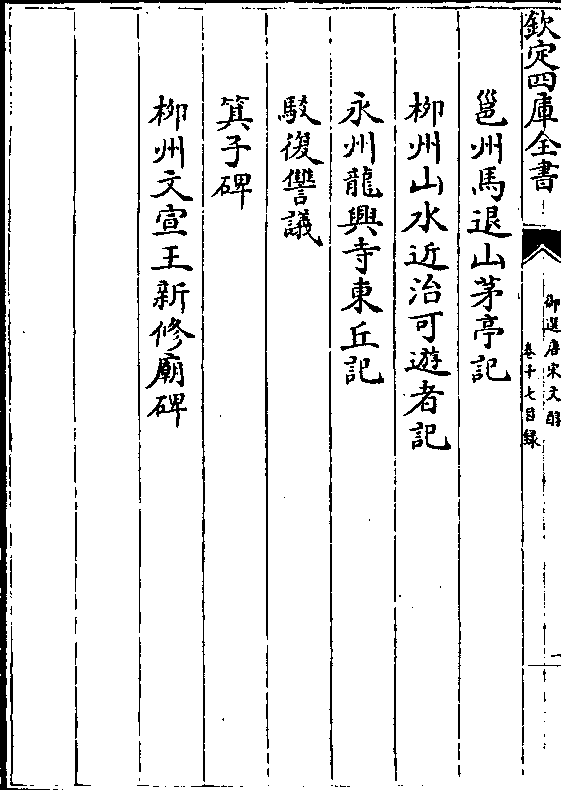 欽定四庫全書
御選唐宋文醇
卷十七目錄
一
邕州馬退山茅亭記
柳州山水近治可遊者記
永州龍興寺東丘記
駮復讐議
箕子碑
柳州文宣王新修廟碑